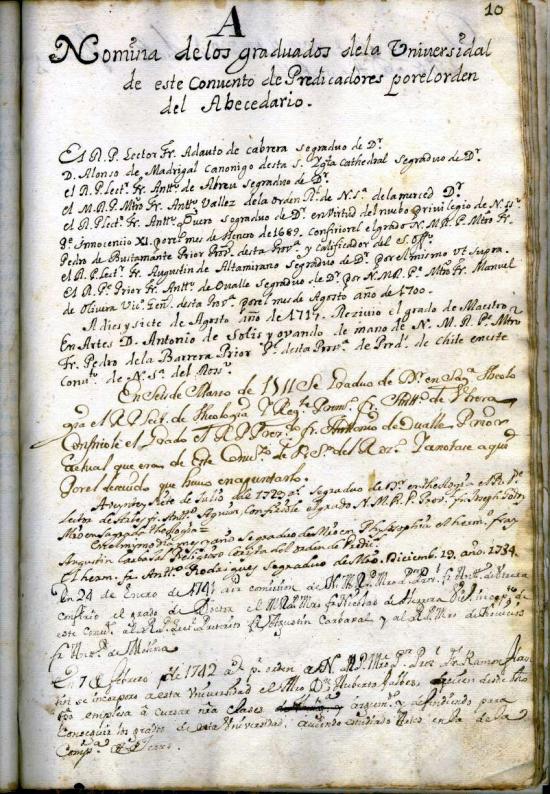 10
A
Nomina delos graduados dela Universidad
de este Convento de Predicadores porelorden
del Abecedario.
El R. P. Lector Fr. Adauto de Cabrera segraduo de Dr.
D. Alonso de Madrigal Canonigo desta S. Ygta Cathedral segraduo de Dr.
el R. P. Lect. Fr. Antto. de Abreu segraduo de Dr.
el M. R. P. Mtro Fr. Antto. Vallez dela Orden Rl. de N. Sa. delamerced Dr.
el R. P. Lectr. Fr. Antto. segraduo de Dr. en Virtud del nuebo Privilegio de N. SSo.
Pe. Innocencio XI. porel mes de Henero de 1689. Confiriorel grado N. M. R. P. Mtro Fr.
Pedro de Bustamante Prior Provl. desta Prova. y Calificador del S. Offo.
el R. P. Lectr. Fr. Augustin de Altamirano segraduo de Dr. por el mismo Vt supra.
El R. Pe. Prior Fr. Antto. de Ovalle segraduo de Dr. por N. M. R. Pe. Mtro Fr. Manuel
de Olivera Vico. Genl. desta Prova. porel mes de Agosto año de 1700.
A dies y siete de Agosto año de 1717. Rezivio el grado de Maestro
En Artes D. Antonio de Solis y ovando de mano de N. M. R. Pe. Mtro
Fr. Pedro de la Barrera Prior Pl. desta Prova. de Predo. de Chile eneste
Convto. de N. Sa. del Rosro.
En Seis de Marso de 1711 Se Graduo de Dr. en Saga. Theolo
gia el R. P. Lect. de Theologia y Regte. Prim. Fr. Antto. de
Confiriole el Grado el R. P. Fr. Antonio de Ovalle Prior
actual que era de Este Convto. de N. Sa. del Rosro. Yanotase aqui
Porel descuido que huvo enapuntarlo.
A veynte y siete de Julio del 1729 as. segraduo de Dr. entheologia el R. Pe.
Lector de Fr. Antto. Aguiar Confiriole el grado N. M. R. P. Prov. fr. Joseph
Mro ensagrada theologia
En elmysmo dia mes y año segraduo de Mro en Phylosophia el hermo. fray
Augustin Carbaxal Religioso Corista del orden de Predes.
El herm. fr. Antto. Rodrigues segraduo de Mro. Diciemb. 19. año. 1734.
En 24 de Enero de 1741 por comision de N. M. R. P. Mro. Prl. fr. Anto. de
confirio el grado de Doctor el M. R. P. Mro. fr. Nicolas de Herrera
este Convto. al R. P. fr. Agustin Carbaxal y al R. P. Mro. de Novicios
fr. Anto. de Molina
En 7 de febrero de 1742 as. pr. orden de N. M. R. P. Mro. Fr. Ramon
se incorporo a esta Universidad el Mro. Dn. quien desde
empiesa â cursar nra clases y arguim.to a defendiendo para
Conseguir los grados de esta Universidad. aviendo estudiado Artes en la de la
Compa. de